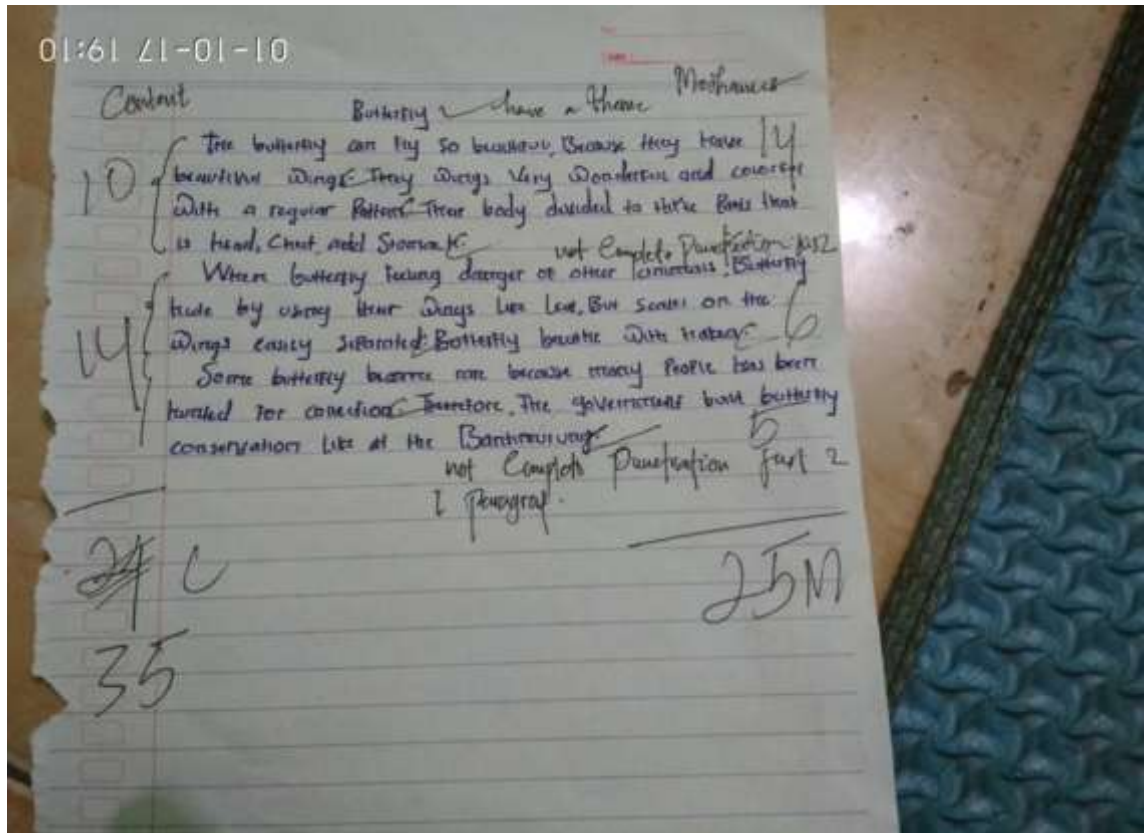 01:61 21-01-10
Content Butterfly have a theme Mechanics
The butterfly can fly so beautiful, Because they have 14
10 beautiful wings They wings very wonderful and colorful
With a regular Pattern Their body divided to three Parts that
is head, Chest, and Stomach
not Complete Punctuation just 2
When butterfly feeling danger of other animals, Butterfly
hide by using their wings like leaf, But scales on the 6
14 wings easily separated Butterfly breathe with
Some butterfly become rare because many People has been
hunted for collection Therefore, The government built butterfly
5
conservation like at the
not Complete Punctuation just 2
1 Paragraf.
24 C 25 M
35